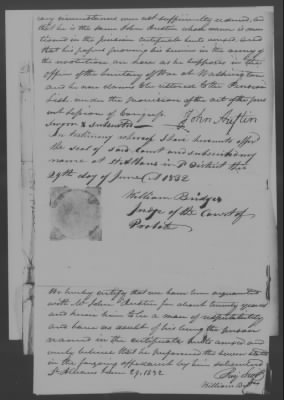 sary circumstances was not sufficiently reduced, and
that he is the same John Austin whose name is men-
tioned in the pension certificate hereto annexed and
that his papers proving his service in the army of
the revolution are here as he supposes in the
office of the Secretary of War at Washington
and he now claims to be returned to the Pension
list under the provisions of the act of the pres-
ent session of Congress
Sworn & subscribed John Austin
In testimony whereof I have hereunto affix
the seal of said Court and subscribed my
name at St Albans in District this
29th day of June AD 1832
William Bridges
Judge of the Court of
Probate
We hereby certify that we have been acquainted
with Mr John Austin for about twenty years
and know him to be a man of respectability
and have no doubt of his being the person
named in the certificate hereto annexed and
verily believe that he performed the service stated
in the foregoing affidavit by him subscribed
St Albans June 29, 1832
William